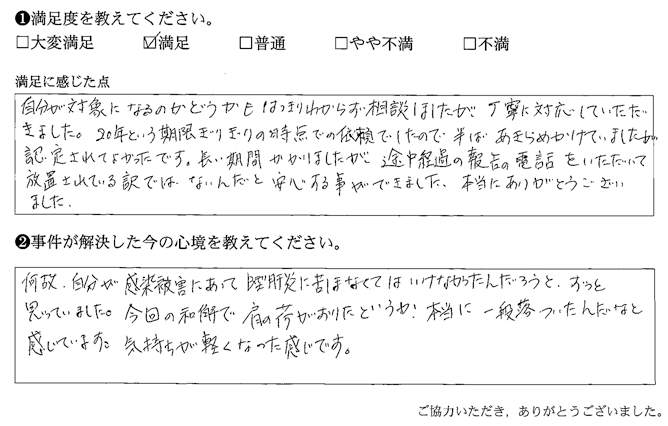 ❶満足度を教えてください。
□大変満足 ☑満足 □普通 □やや不満 □不満
満足に感じた点
自分が対象になるのかどうかもはっきりわからず相談しましたが、丁寧に対応していただ
きました。20年という期限ぎりぎりの時点での依頼でしたので半ばあきらめかけていましたが
認定されてよかったです。長い期間かかりましたが途中経過の報告の電話をいただいて
放置されている訳ではないんだと安心する事ができました、本当にありがとうござい
ました。
❷事件が解決した今の心境を教えてください。
何故、自分が感染被害にあってB型肝炎に苦しまなくてはいけなかったんだろうと、ずっと
思っていました。今回の和解で肩の荷がおりたというか、本当に一段落ついたんだなと
感じています。気持ちが軽くなった感じです。
ご協力いただき，ありがとうございました。